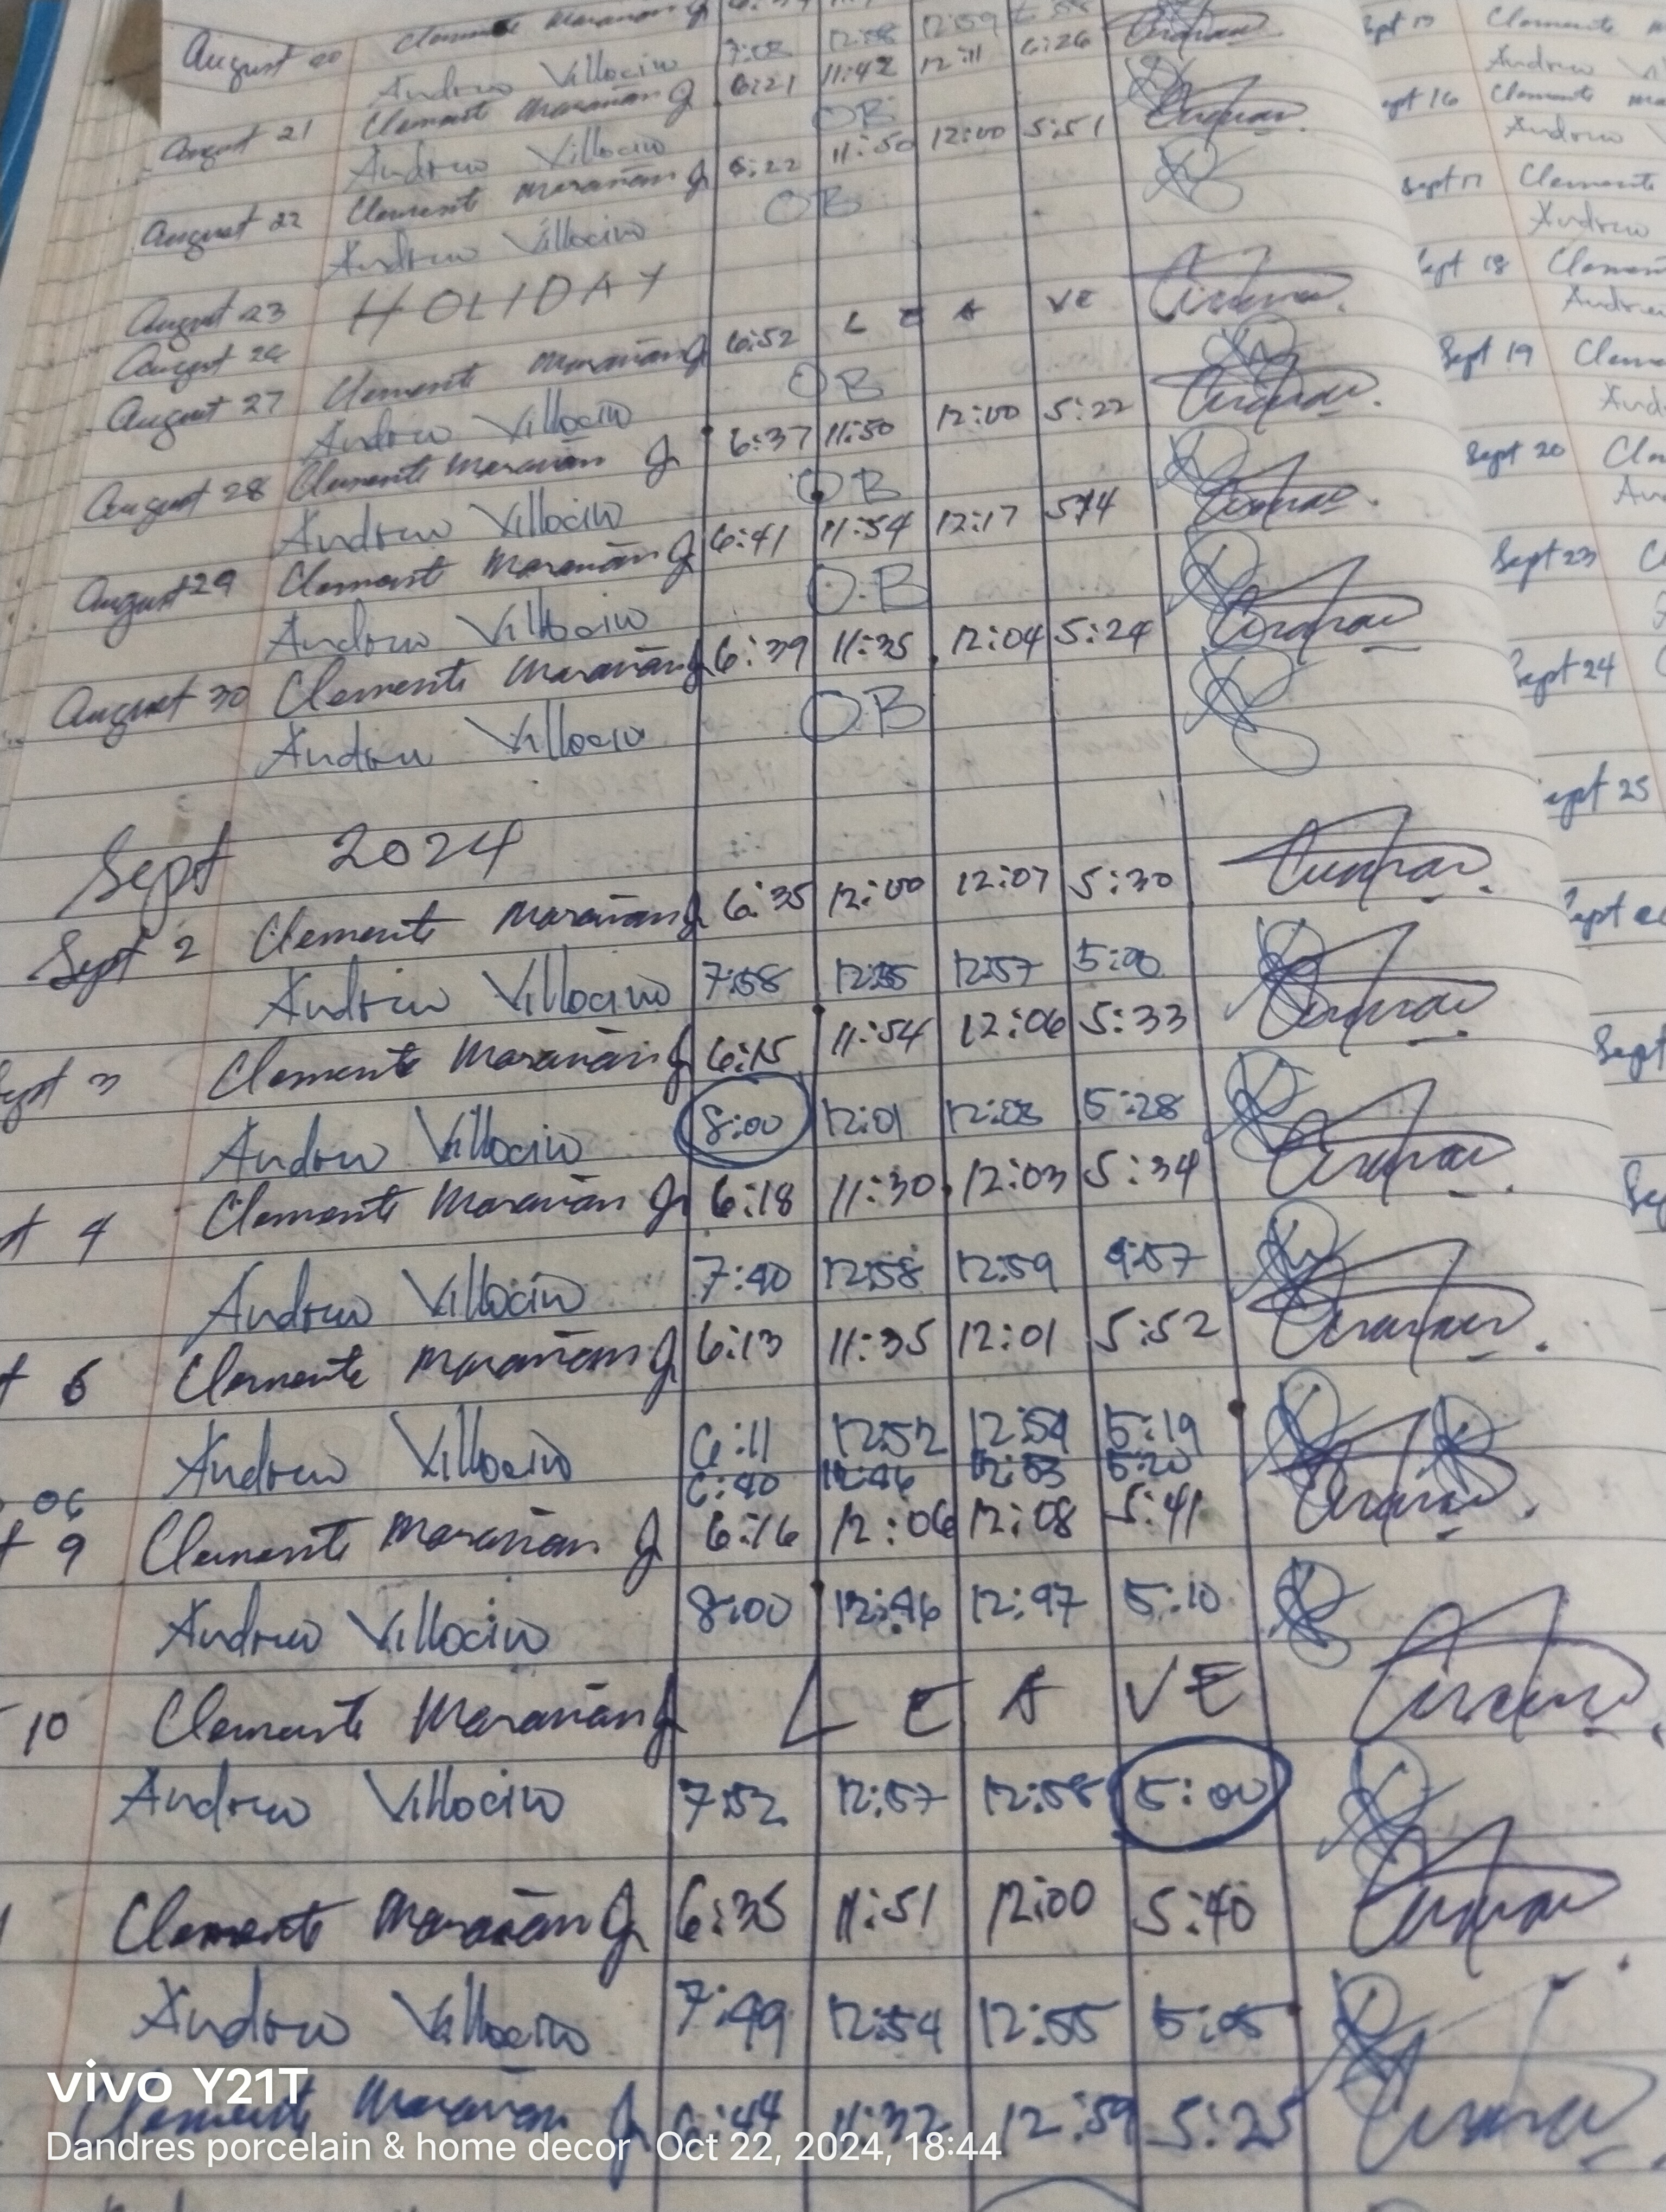 August 20 Clemente Marañan Jr
Andrew Villocino 7:02 12:58 12:59
August 21 Clemente Marañan Jr 6:21 11:42 12:11 6:26
Andrew Villocino OB
August 22 Clemente Marañan Jr 6:22 11:50 12:00 5:51
Andrew Villocino OB
August 23 HOLIDAY
August 26
August 27 Clemente Marañan Jr 6:52 LEAVE
Andrew Villocino OB
August 28 Clemente Marañan Jr 6:37 11:50 12:00 5:22
Andrew Villocino OB
August 29 Clemente Marañan Jr 6:41 11:54 12:17 5:14
Andrew Villocino O.B
August 30 Clemente Marañan Jr 6:39 11:35 12:04 5:24
Andrew Villocino OB
Sept 2024
Sept 2 Clemente Marañan Jr 6:35 12:00 12:07 5:30
Andrew Villocino 7:58 12:55 12:57 5:00
Sept 3 Clemente Marañan Jr 6:15 11:54 12:06 5:33
Andrew Villocino 8:00 12:01 12:03 5:28
4 Clemente Marañan Jr 6:18 11:30 12:03 5:34
Andrew Villocino 7:40 12:58 12:59 4:57
6 Clemente Marañan Jr 6:13 11:35 12:01 5:52
Andrew Villocino 6:11 12:52 12:54 5:19
06 6:40 12:46 12:53 5:20
9 Clemente Marañan Jr 6:16 12:06 12:08 5:41
Andrew Villocino 8:00 12:46 12:47 5:10
10 Clemente Marañan Jr LEAVE
Andrew Villocino 7:52 12:57 12:58 5:00
Clemente Marañan Jr 6:35 11:51 12:00 5:40
Andrew Villocino 7:49 12:54 12:55 5:05
Clemente Marañan Jr 6:44 11:32 12:59 5:25
Clemente
Andrew
Sept 16 Clemente
Andrew
Sept 17 Clemente
Andrew
Sept 18 Clement
Andrew
Sept 19 Clem
And
Sept 20 Cle
An
Sept 23 C
Sept 24
Sept 25
Sept
Sept
vivo Y21T
Dandres porcelain & home decor Oct 22, 2024, 18:44